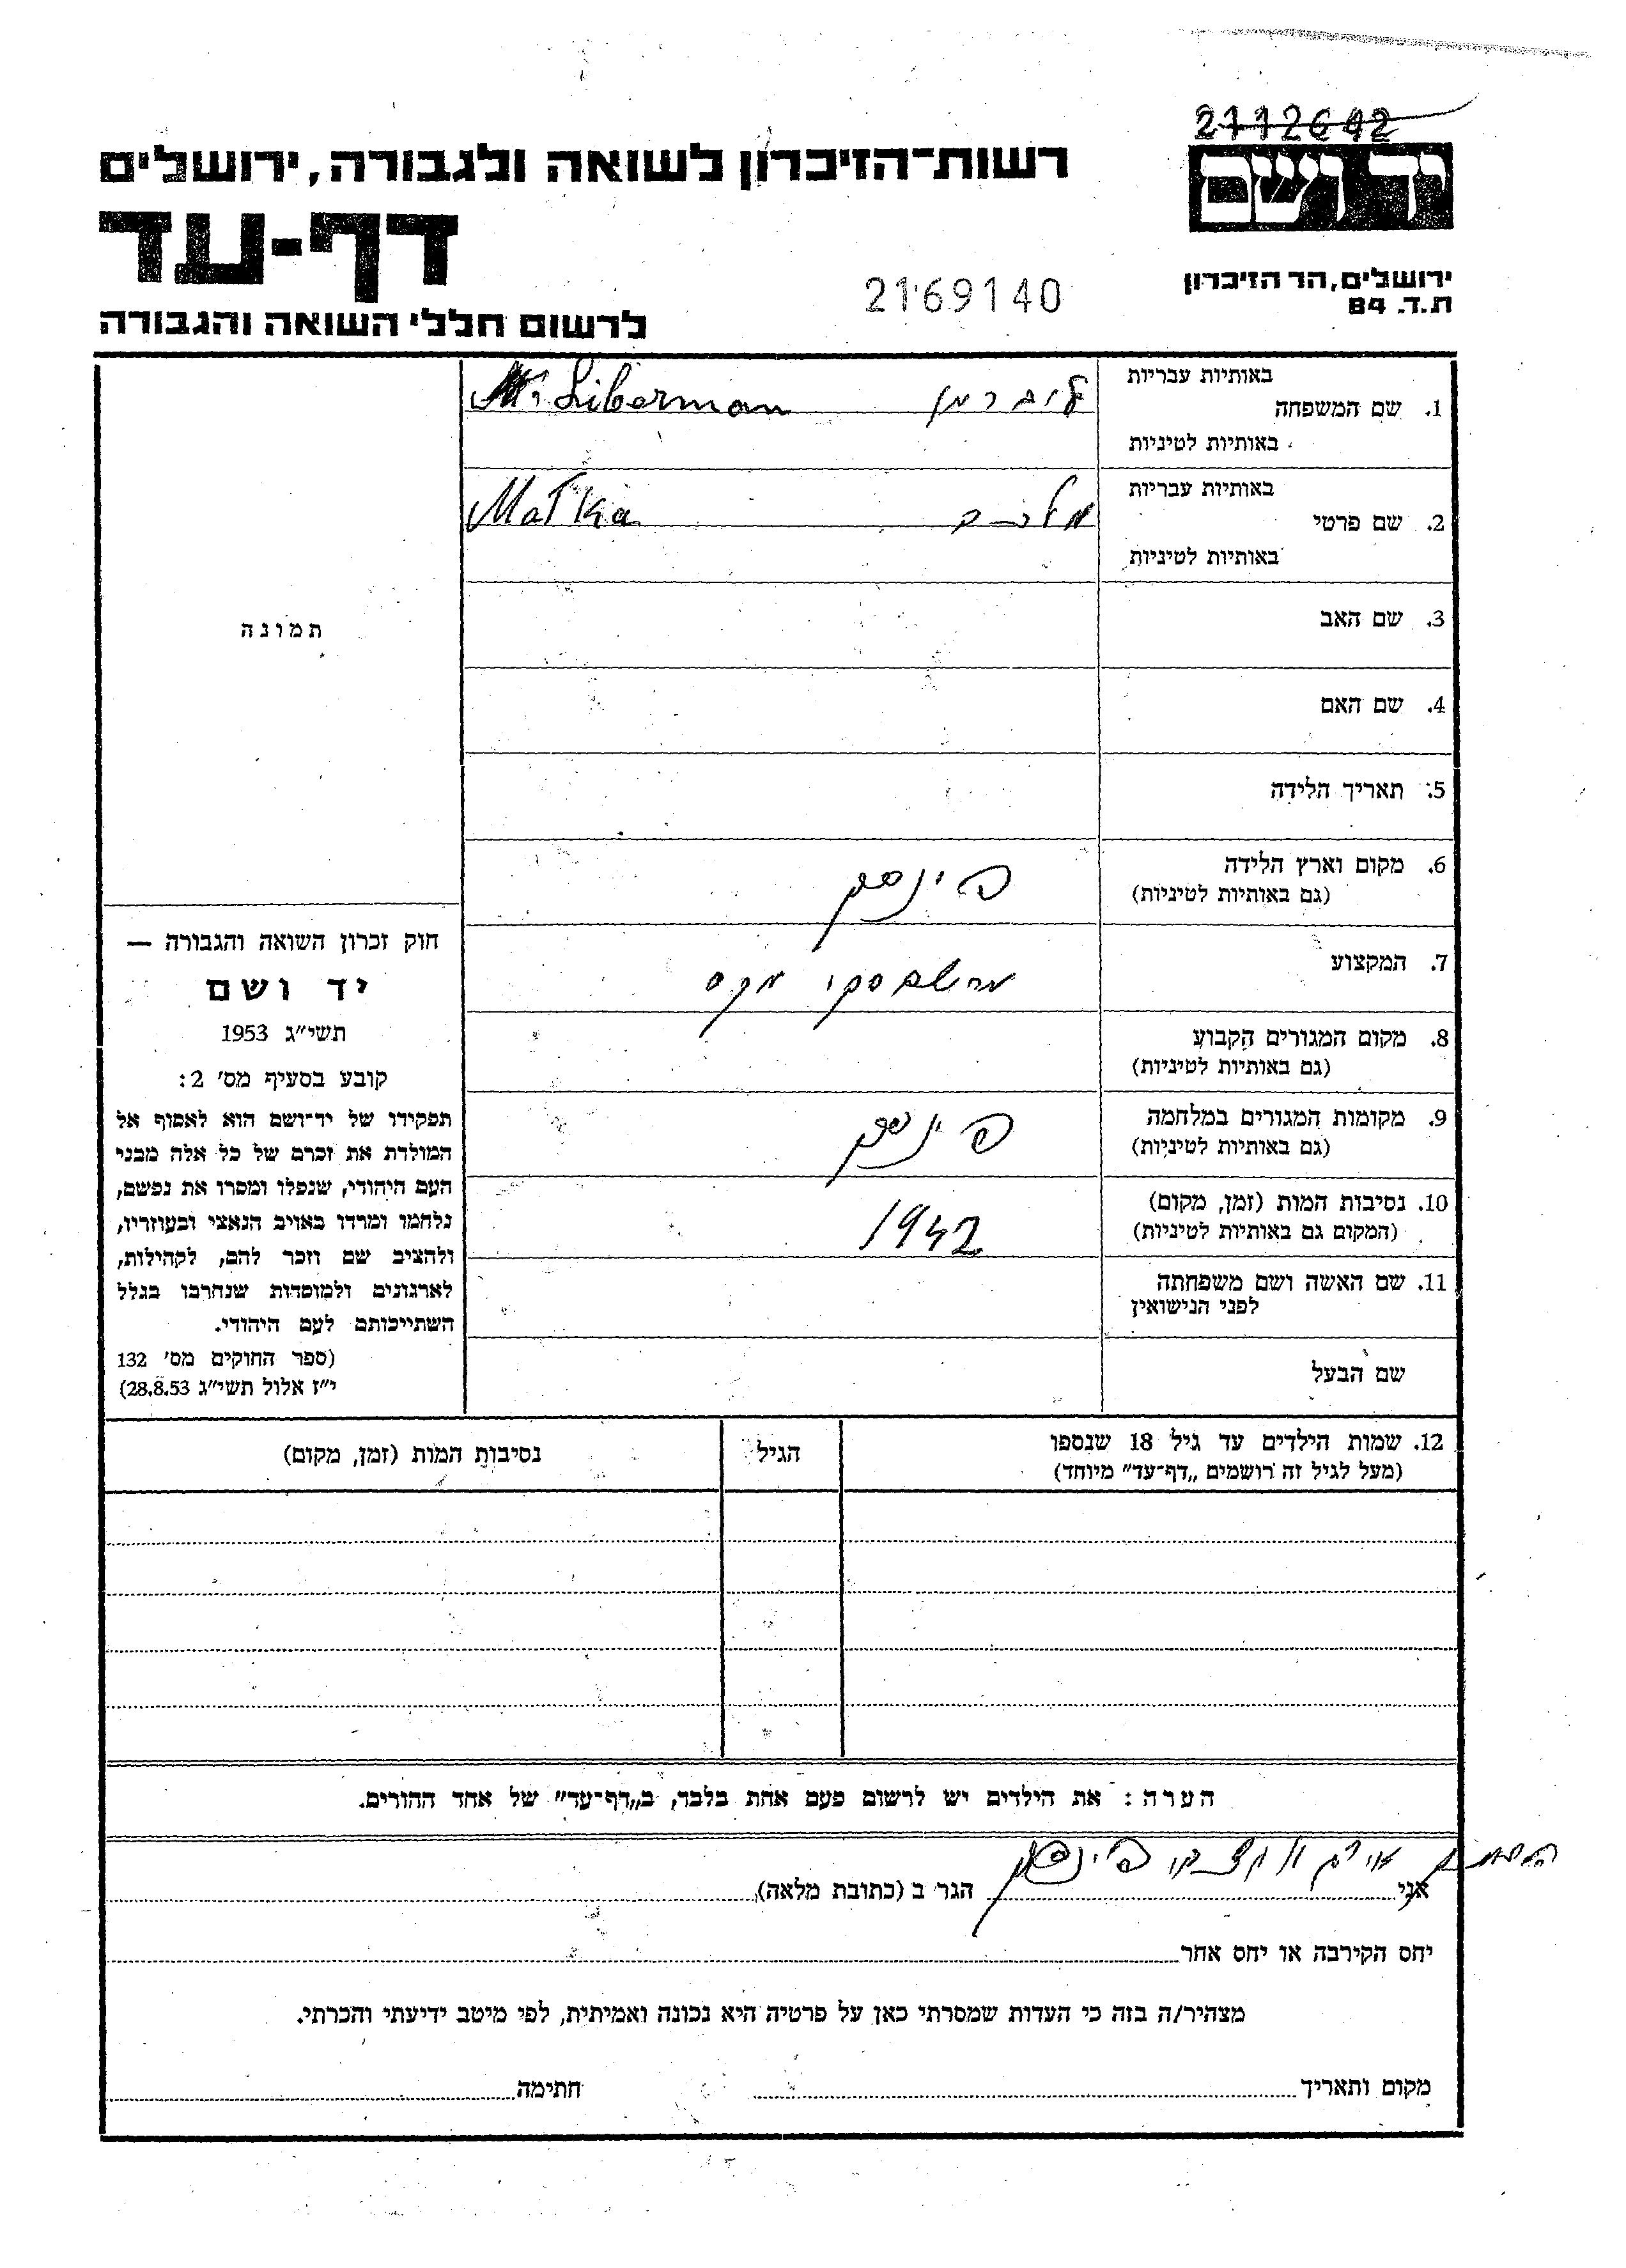 2112642
יד ושם
רשות־הזיכרון לשואה ולגבורה, ירושלים
דף-עד
ירושלים, הר הזיכרון
ת.ד. 84
2169140
לרשום חללי השואה והגבורה
באותיות עבריות
1. שם המשפחה
ליברמן Liberman
באותיות לטיניות
באותיות עבריות
2. שם פרטי
Matka
באותיות לטיניות
תמונה
3. שם האב
4. שם האם
5. תאריך הלידה
6. מקום וארץ הלידה
(גם באותיות לטיניות)
פינסק
7. המקצוע
8. מקום המגורים הקבוע
(גם באותיות לטיניות)
9. מקומות המגורים במלחמה
(גם באותיות לטיניות)
פינסק
10. נסיבות המות (זמן, מקום)
(המקום גם באותיות לטיניות)
1942
11. שם האשה ושם משפחתה
לפני הנישואין
שם הבעל
חוק זכרון השואה והגבורה —
יד ושם
תשי״ג 1953
קובע בסעיף מס׳ 2:
תפקידו של יד־ושם הוא לאסוף אל
המולדת את זכרם של כל אלה מבני
העם היהודי, שנפלו ומסרו את נפשם,
נלחמו ומרדו באויב הנאצי ובעוזריו,
ולהציב שם וזכר להם, לקהילות,
לארגונים ולמוסדות שנחרבו בגלל
השתייכותם לעם היהודי.
(ספר החוקים מס׳ 132
י״ז אלול תשי״ג 28.8.53)
12. שמות הילדים עד גיל 18 שנספו
(מעל לגיל זה רושמים „דף־עד״ מיוחד)
הגיל
נסיבות המות (זמן, מקום)
הערה: את הילדים יש לרשום פעם אחת בלבד, ב„דף־עד״ של אחד ההורים.
פינסק
אני
הגר ב (כתובת מלאה)
יחס הקירבה או יחס אחר
מצהיר/ה בזה כי העדות שמסרתי כאן על פרטיה היא נכונה ואמיתית, לפי מיטב ידיעתי והכרתי.
מקום ותאריך
חתימה